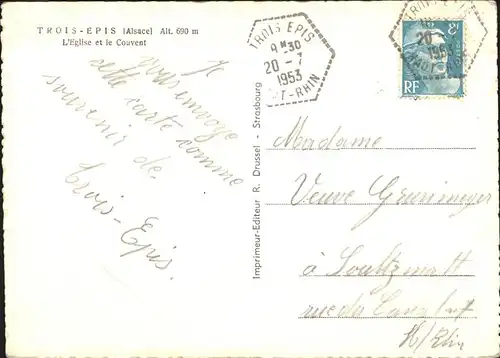 TROIS-EPIS (Alsace) Alt. 690 m
L'Eglise et le Couvent
Je
vous envoye
cette carte comme
souvenir de
Trois-Epis.
Imprimeur-Editeur R. Drussel - Strasbourg
TROIS EPIS
9 H 30
20 - 7
1953
HT-RHIN
TROIS EPIS
20
1953
8F
RF
Madame
Veuve
à Soultzmatt
rue du
H/Rhin